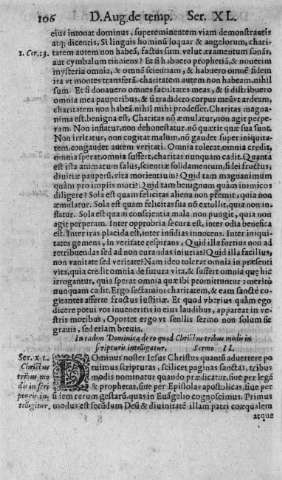 106 D. Aug. de temp. Ser. XL.
eius intonat dominus, supereminentem viam demonstrantis
atq; dicentis, Si linguis hominũ loquar & angelorum, chari-
1. Cor. 13. tatem autem non habeã, factus sum velut æramentum sonãs
aut cymbalum tinniens? Et si habuero prophetiã, & nouerim
mysteria omnia, & omnẽ scientiam, & habuero omnẽ fidem
ita vt montes transferã, charitatem autem non habeam, nihil
sum. Et si donauero omnes facultates meas, & si distribuero
omnia mea pauperibus, & si tradidero corpus meũ vt ardeam,
charitatem non habeã, nihil mihi prodesset. Charitas magna-
nima est, benigna est, Charitas nõ æmulatur, non agit perpe-
ram. Non inflatur, non dehonestatur, nõ quærit quæ sua sunt.
Non irritatur, non cogitat malum, nõ gaudet super iniquita-
tem, congaudet autem veritati. Omnia tolerat, omnia credit,
omnia sperat, omnia suffert, charitas nunquam cadit. Quanta
est ista animatum salus, scientiæ solidamentum, fidei fructus,
diuitiæ pauperũ, vita morientium? Quid tam magnanimum
quàm pro impiis mori? Quid tam benignum quàm inimicos
diligere? Sola est quam felicitas aliena non premit, quia non
æmulatur. Sola est quam felicitas sua nõ extollit, quia non in-
flatur. Sola est quam conscientia mala non pungit, quia non
agit perperam. Inter opprobria secura est, inter odia benefica
est. Inter iras placida est, inter insidias innocens. Inter iniqui-
tates gemens, in veritate respirans. Quid illa fortius non ad
retribuendas sed ad non curandas iniurias? Quid illa facilius,
non vanitate sed veritate? Nam ideo tolerat omnia in præsenti
vita, quia credit omnia de futura vita, & suffert omnia quæ hic
irrogantur, quia sperat omnia quæ ibi promittuntur: meritò
nunquam cadit. Ergo sectamini charitatem, & eam sanctè co-
gitantes afferte fructus iustitiæ. Et quod vberius quàm ego
dicere potui vos inueneritis in eius laudibus, appareat in ve-
stris moribus. Oportet ergo vt senilis sermo non solum sit
grauis, sed etiam breuis.
In eadem Dominica de eo quod Christus tribus modis in
scripturis intelligatur. Sermo XL.
Ser. XL. DOminus noster Iesus Christus quantũ aduertere po-
Christus tuimus scripturas, scilicet paginas sanctas, tribus
tribus mo- modis nominatur quando prædicatur, siue per legẽ
dis in scri- & prophetas, siue per Epistolas apostolicas, siue per
si- dem rerum gestarũ, quas in Euãgelio cognoscimus. Primus
modus est secũdum Deũ & diuinitatẽ illam patri coæqualem
atque